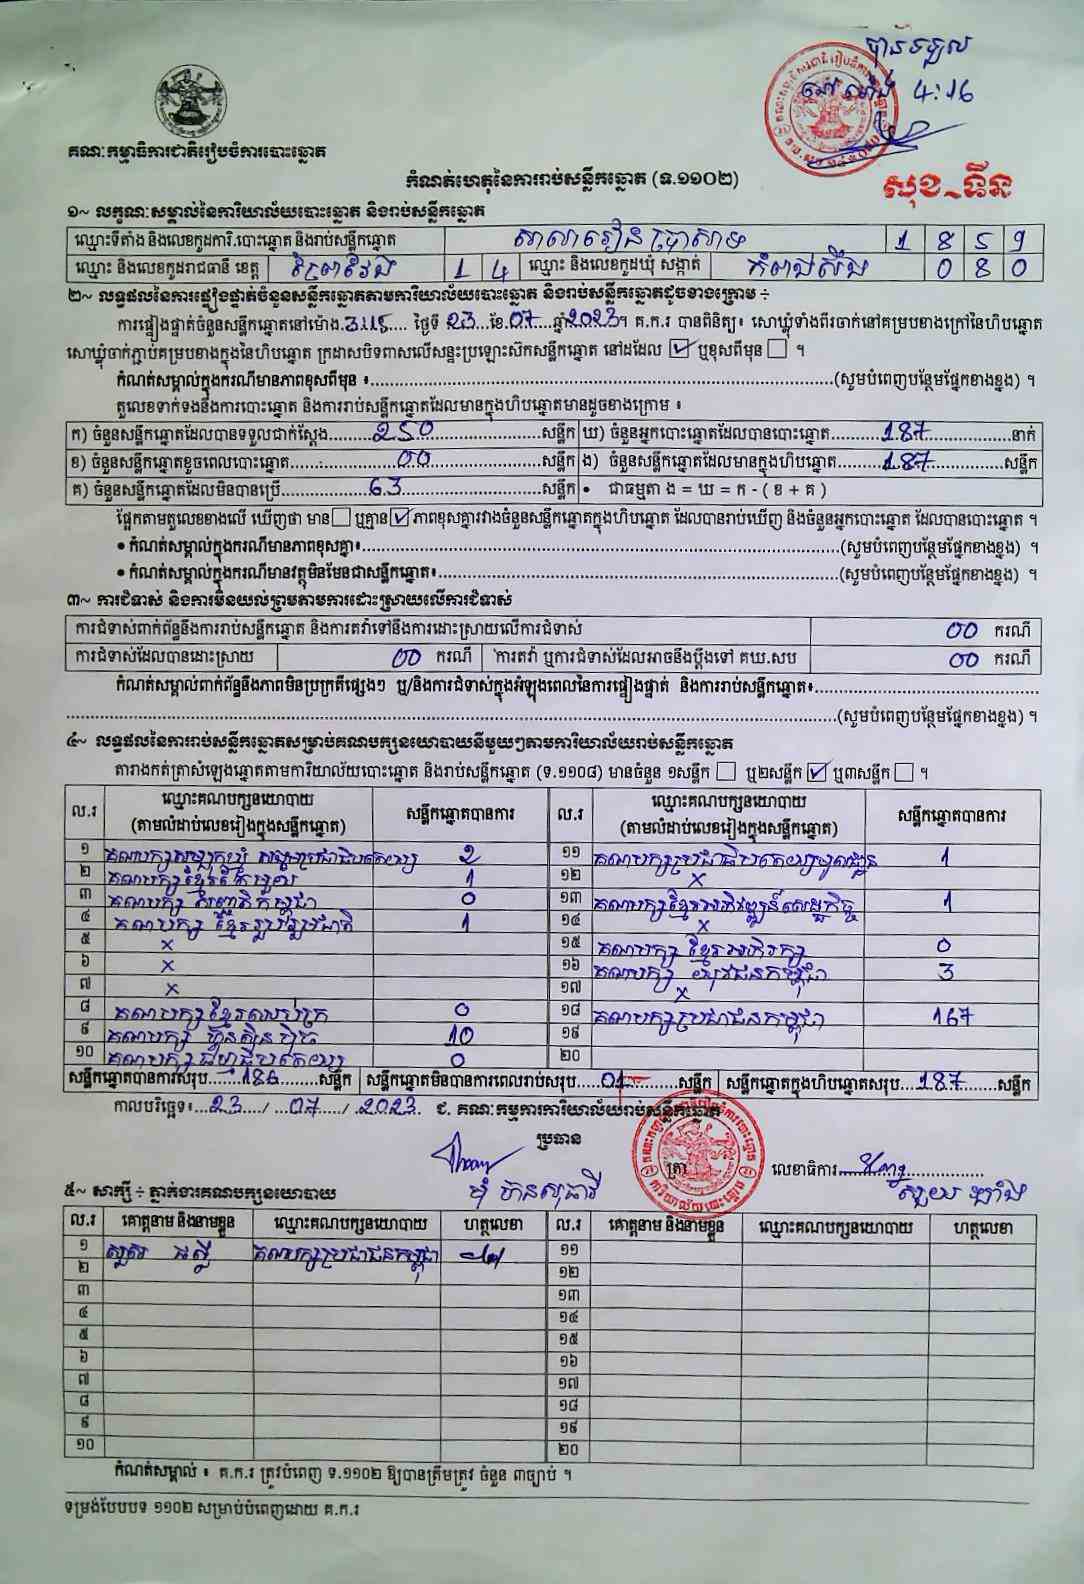 បានទទួល
ម៉ោង 4:16
គណៈកម្មាធិការជាតិរៀបចំការបោះឆ្នោត
កំណត់ហេតុនៃការរាប់សន្លឹកឆ្នោត (ទ.១១០២)
សុខ-ទីន
១~ លក្ខណៈសម្គាល់នៃការិយាល័យបោះឆ្នោត និងរាប់សន្លឹកឆ្នោត
ឈ្មោះទីតាំង និងលេខកូដការិ.បោះឆ្នោត និងរាប់សន្លឹកឆ្នោត សាលារៀន ប្រាសាទ 1 8 5 9
ឈ្មោះ និងលេខកូដរាជធានី ខេត្ត ព្រៃវែង 1 4 ឈ្មោះ និងលេខកូដឃុំ សង្កាត់ កំពង់សឹង 0 8 0
២~ លទ្ធផលនៃការផ្ទៀងផ្ទាត់ចំនួនសន្លឹកឆ្នោតតាមការិយាល័យបោះឆ្នោត និងរាប់សន្លឹកឆ្នោតដូចខាងក្រោម ÷
ការផ្ទៀងផ្ទាត់ចំនួនសន្លឹកឆ្នោតនៅម៉ោង 3:15 ថ្ងៃទី 23 ខែ 07 ឆ្នាំ 2023។ គ.ក.រ បានពិនិត្យ៖ សោឃ្លុំទាំងពីរចាក់នៅគម្របខាងក្រៅនៃហិបឆ្នោត
សោឃ្លុំចាក់ភ្ជាប់គម្របខាងក្នុងនៃហិបឆ្នោត ក្រដាសបិទពាសលើសន្ទះប្រឡោះស៊កសន្លឹកឆ្នោត នៅដដែល ☑ ឬខុសពីមុន ☐ ។
កំណត់សម្គាល់ក្នុងករណីមានភាពខុសពីមុន ៖ (សូមបំពេញបន្ថែមផ្នែកខាងខ្នង) ។
តួលេខទាក់ទងនឹងការបោះឆ្នោត និងការរាប់សន្លឹកឆ្នោតដែលមានក្នុងហិបឆ្នោតមានដូចខាងក្រោម ៖
ក) ចំនួនសន្លឹកឆ្នោតដែលបានទទួលជាក់ស្តែង 250 សន្លឹក ឃ) ចំនួនអ្នកបោះឆ្នោតដែលបានបោះឆ្នោត 187 នាក់
ខ) ចំនួនសន្លឹកឆ្នោតខូចពេលបោះឆ្នោត 00 សន្លឹក ង) ចំនួនសន្លឹកឆ្នោតដែលមានក្នុងហិបឆ្នោត 187 សន្លឹក
គ) ចំនួនសន្លឹកឆ្នោតដែលមិនបានប្រើ 63 សន្លឹក • ជាធម្មតា ង = ឃ = ក - ( ខ + គ )
ផ្អែកតាមតួលេខខាងលើ ឃើញថា មាន ☐ ឬគ្មាន ☑ ភាពខុសគ្នារវាងចំនួនសន្លឹកឆ្នោតក្នុងហិបឆ្នោត ដែលបានរាប់ឃើញ និងចំនួនអ្នកបោះឆ្នោត ដែលបានបោះឆ្នោត ។
• កំណត់សម្គាល់ក្នុងករណីមានភាពខុសគ្នា៖ (សូមបំពេញបន្ថែមផ្នែកខាងខ្នង) ។
• កំណត់សម្គាល់ក្នុងករណីមានវត្ថុមិនមែនជាសន្លឹកឆ្នោត៖ (សូមបំពេញបន្ថែមផ្នែកខាងខ្នង) ។
៣~ ការជំទាស់ និងការមិនយល់ព្រមតាមការដោះស្រាយលើការជំទាស់
ការជំទាស់ពាក់ព័ន្ធនឹងការរាប់សន្លឹកឆ្នោត និងការតវ៉ាទៅនឹងការដោះស្រាយលើការជំទាស់ 00 ករណី
ការជំទាស់ដែលបានដោះស្រាយ 00 ករណី ការតវ៉ា ឬការជំទាស់ដែលអាចនឹងប្តឹងទៅ គឃ.សប 00 ករណី
កំណត់សម្គាល់ពាក់ព័ន្ធនឹងភាពមិនប្រក្រតីផ្សេងៗ ឬ/និងការជំទាស់ក្នុងអំឡុងពេលនៃការផ្ទៀងផ្ទាត់ និងការរាប់សន្លឹកឆ្នោត៖
(សូមបំពេញបន្ថែមផ្នែកខាងខ្នង) ។
៤~ លទ្ធផលនៃការរាប់សន្លឹកឆ្នោតសម្រាប់គណបក្សនយោបាយនីមួយៗតាមការិយាល័យរាប់សន្លឹកឆ្នោត
តារាងកត់ត្រាសំឡេងឆ្នោតតាមការិយាល័យបោះឆ្នោត និងរាប់សន្លឹកឆ្នោត (ទ.១១០៨) មានចំនួន ១សន្លឹក ☐ ឬ២សន្លឹក ☑ ឬ៣សន្លឹក ☐ ។
ល.រ ឈ្មោះគណបក្សនយោបាយ (តាមលំដាប់លេខរៀងក្នុងសន្លឹកឆ្នោត) សន្លឹកឆ្នោតបានការ ល.រ ឈ្មោះគណបក្សនយោបាយ (តាមលំដាប់លេខរៀងក្នុងសន្លឹកឆ្នោត) សន្លឹកឆ្នោតបានការ
១ គណបក្សសំបុកឃ្មុំ សង្គមប្រជាធិបតេយ្យ 2 ១១ គណបក្សប្រជាធិបតេយ្យមូលដ្ឋាន 1
២ គណបក្សខ្មែរតែមួយ 1 ១២ x
៣ គណបក្ស កម្ពុជា 0 ១៣ គណបក្សខ្មែរអភិវឌ្ឍន៍សេដ្ឋកិច្ច 1
៤ គណបក្ស ខ្មែររួបរួមជាតិ 1 ១៤ x
៥ x ១៥ គណបក្ស ខ្មែរអភិរក្ស 0
៦ x ១៦ គណបក្ស យុវជនកម្ពុជា 3
៧ x ១៧ x
៨ គណបក្សខ្មែរឈប់ក្រ 0 ១៨ គណបក្សប្រជាជនកម្ពុជា 167
៩ គណបក្ស ហ៊្វុនស៊ិនប៉ិច 10 ១៩
១០ គណបក្ស ធម្មាធិបតេយ្យ 0 ២០
សន្លឹកឆ្នោតបានការសរុប 186 សន្លឹក សន្លឹកឆ្នោតមិនបានការពេលរាប់សរុប 01 សន្លឹក សន្លឹកឆ្នោតក្នុងហិបឆ្នោតសរុប 187 សន្លឹក
កាលបរិច្ឆេទ៖ 23 / 07 / 2023 ជ. គណៈកម្មការការិយាល័យរាប់សន្លឹកឆ្នោត
ប្រធាន
ត្រា លេខាធិការ
៥~ សាក្សី ÷ ភ្នាក់ងារគណបក្សនយោបាយ
ល.រ គោត្តនាម និងនាមខ្លួន ឈ្មោះគណបក្សនយោបាយ ហត្ថលេខា ល.រ គោត្តនាម និងនាមខ្លួន ឈ្មោះគណបក្សនយោបាយ ហត្ថលេខា
១ គណបក្សប្រជាជនកម្ពុជា ១១
២ ១២
៣ ១៣
៤ ១៤
៥ ១៥
៦ ១៦
៧ ១៧
៨ ១៨
៩ ១៩
១០ ២០
កំណត់សម្គាល់ ៖ គ.ក.រ ត្រូវបំពេញ ទ.១១០២ ឱ្យបានត្រឹមត្រូវ ចំនួន ៣ច្បាប់ ។
ទម្រង់បែបបទ ១១០២ សម្រាប់បំពេញដោយ គ.ក.រ